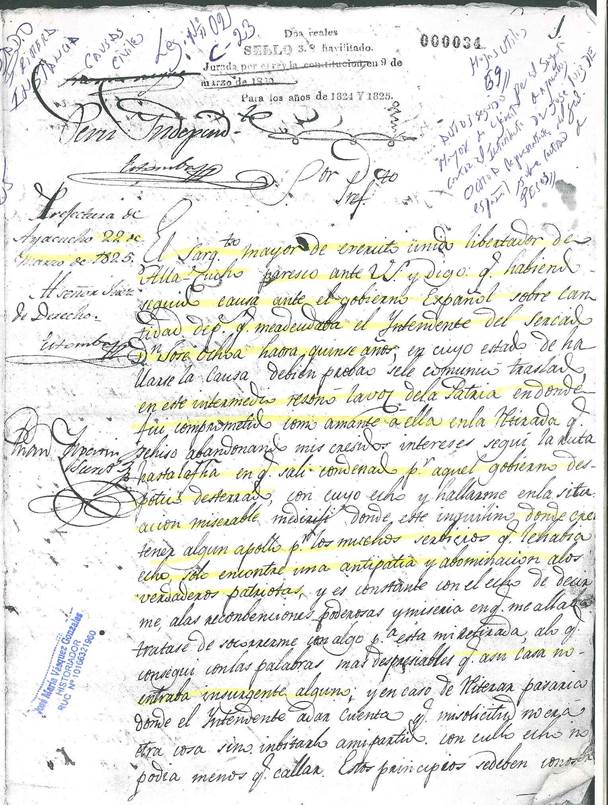 JUZGADO
PRIMERA
INSTANCIA
CAUSAS
CIVILES
Leg. Nº 02
C-23
Dos reales
SELLO 3.º havilitado.
Jurada por el rey la constitucion en 9 de
marzo de 1820.
Para los años de 1824 Y 1825.
000034
1
Hojas utiles
59
Autos seguidos por el Sargto
Mayor de ejercito
contra el Intendente Dn Jose
Ochoa
español sobre cantidad de
pesos
Peru Independte
Por Dto
Pref
Prefectura de
Ayacucho 22 de
Marzo de 1825.
Al señor Juez
de Derecho.
El Sargto mayor de exercito unido libertador de
paresco ante VS. y Digo: q. habiendo
seguido causa ante el gobierno Español sobre can
tidad de p. q. meadeudaba el Yntendente del Sercado
Dn José Ochoa haora quinse años, en cuyo estado de ha
llarse la Causa, debien probar sele comunico traslado
en este intermedio resonó lavoz dela Patria en donde
fui comprometido como amante a ella enla Retirada q.
sehiso abandonando mis cresidos intereses segui la ruta
hasta en q. sali condenado pr. aquel gobierno des
potico desterrado, con cuyo echo y hallarme enla situ
acion miserable donde este inquilino donde crei
tener algun apollo pr. los muchos serbicios q. lehabia
echo, solo encontré una antipatia y abominacion alos
verdaderos patriotas, y es constante con el echo de decir
me, alas reconbenciones poderosas y miseria enq. me allaba
tratase de socorrerme con algo pa. esta mi retirada, alo q.
consegui conlas palabras mas despresiables q. asu casa no
entraba insurgente alguno, y en caso de Reiterar pasaria
donde el Yntendente adar Cuenta y q. misolicitud noera
otra cosa sino inbitarlo amipartido. con cullo echo no
podia menos q. callar. Estos principios sedeben conoser
José María Vásquez Gonzáles
HISTORIADOR
RUC Nº 10106321960